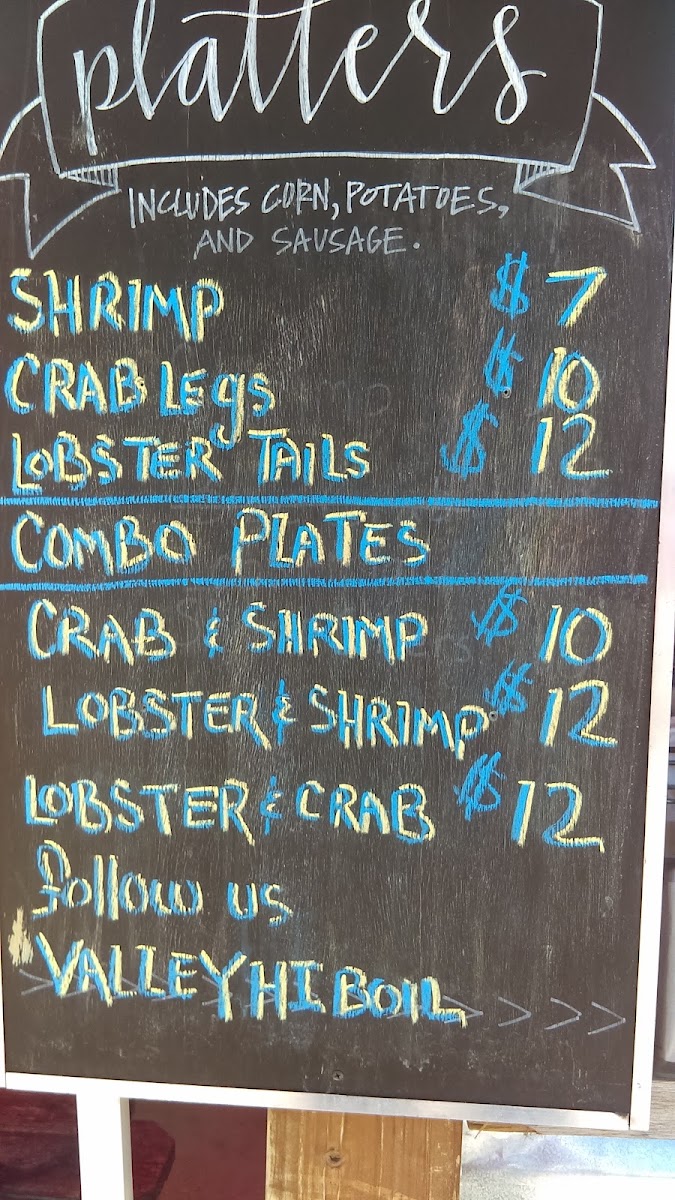 platters
INCLUDES CORN, POTATOES,
AND SAUSAGE.
SHRIMP $ 7
CRAB LEgS $ 10
LOBSTER TAILS $ 12
COMBO PLATES
CRAB & SHRIMP $ 10
LOBSTER & SHRIMP $ 12
LOBSTER & CRAB $ 12
follow us
VALLEY HI BOIL > > > >